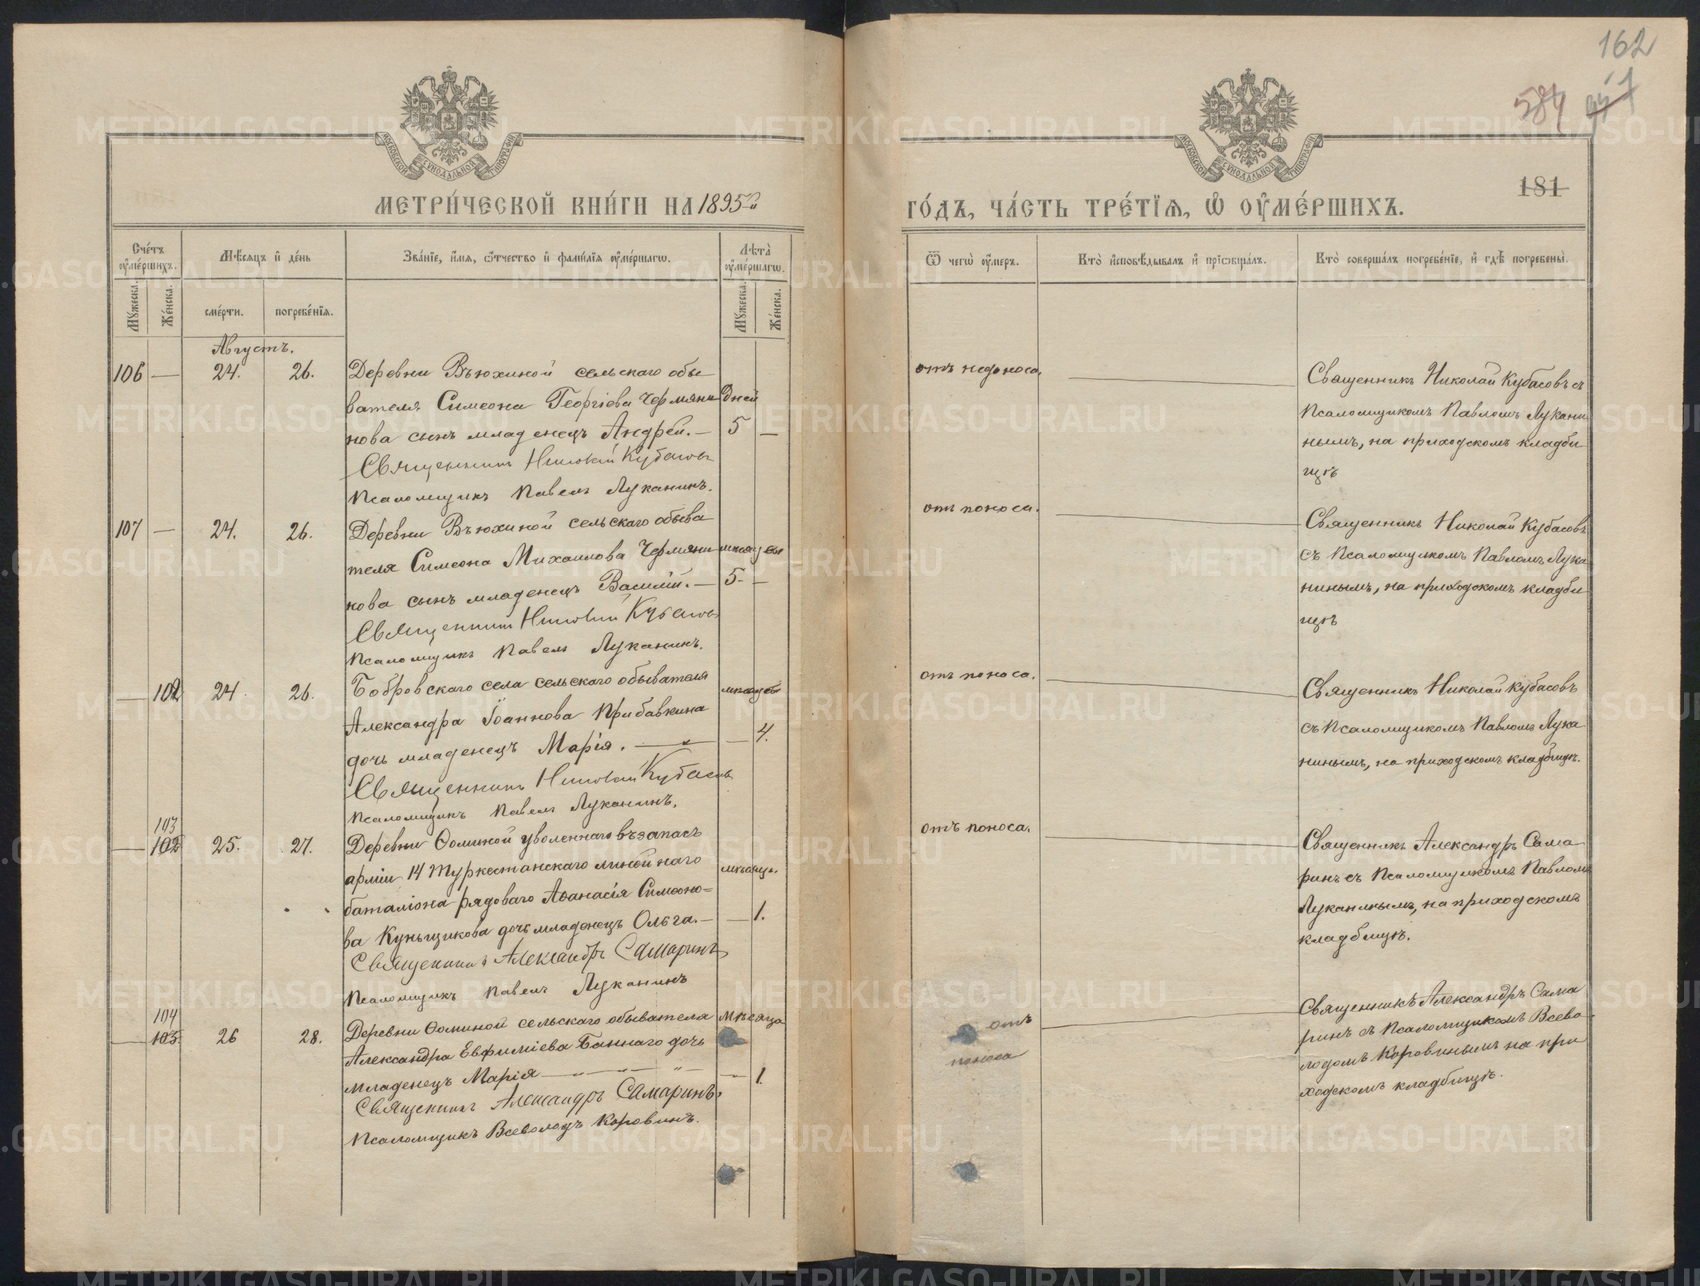 162
584
181
МЕТРИ́ЧЕСКОЙ КНИ́ГИ НА 1895й
ГО́ДЪ, ЧА́СТЬ ТРЕ́ТІѦ, Ѡ҆ ОУ҆МЕ́РШИХЪ.
Сче́тъ оу҆ме́ршихъ.
Мѣ́сяцъ и҆ де́нь
Зва́нїе, и҆́мѧ, ѻ҆́тчество и҆ фами́лїѧ оу҆ме́ршагѡ.
Лѣ́та оу҆ме́ршагѡ.
Ѿ чегѡ̀ оу҆́меръ.
Кто̀ и҆сповѣ́дывалъ и҆ прїѡбща́лъ.
Кто̀ соверша́лъ погребе́нїе, и҆ гдѣ̀ погребены̀.
Му́жеска.
Же́нска.
сме́рти.
погребе́нїѧ.
Му́жеска.
Же́нска.
Августъ.
106 — 24. 26.
Деревни Вьюхиной сельскаго обы
вателя Симеона Георгіева Чермяни
нова сынъ младенецъ Андрей. —
Дней
5 —
Священникъ Николай Кубасовъ
Псаломщикъ Павелъ Луканинъ.
отъ недоноса.
Священникъ Николай Кубасовъ съ
Псаломщикомъ Павломъ Лукани
нымъ, на приходскомъ кладби
щѣ
107 — 24. 26.
Деревни Вьюхиной сельскаго обыва
теля Симеона Михаилова Чермяни
нова сынъ младенецъ Василій. —
мѣсяцевъ
5 —
Священникъ Николай Кубасовъ
Псаломщикъ Павелъ Луканинъ.
отъ поноса.
Священникъ Николай Кубасовъ
съ Псаломщикомъ Павломъ Лука
нинымъ, на приходскомъ кладби
щѣ
— 102 24 26.
Бобровскаго села сельскаго обывателя
Александра Іоаннова Прибавкина
дочь младенецъ Марія. —
мѣсяцевъ
— 4.
Священникъ Николай Кубасовъ
Псаломщикъ Павелъ Луканинъ.
отъ поноса.
Священникъ Николай Кубасовъ
съ Псаломщикомъ Павломъ Лука
нинымъ, на приходскомъ кладбищѣ.
103
— 102 25. 27.
Деревни Ѳоминой уволеннаго въ запасъ
арміи 14 Туркестанскаго линейнаго
баталіона рядоваго Аѳанасія Симеоно-
ва Куньщикова дочь младенецъ Ольга. —
мѣсяцъ.
— 1.
Священникъ Александръ Самаринъ
Псаломщикъ Павелъ Луканинъ
отъ поноса.
Священникъ Александръ Сама
ринъ съ Псаломщикомъ Павломъ
Луканинымъ, на приходскомъ
кладбищѣ.
104
— 103 26 28.
Деревни Ѳоминой сельскаго обывателя
Александра Евфиміева Баннаго дочь
младенецъ Марія —
Мѣсяца
— 1.
Священникъ Александръ Самаринъ.
Псаломщикъ Всеволодъ Коровинъ.
отъ
поноса
Священникъ Александръ Сама
ринъ съ Псаломщикомъ Всево
лодомъ Коровинымъ на при
ходскомъ кладбищѣ.
METRIKI.GASO-URAL.RU